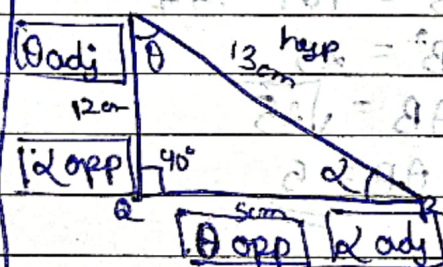 θ adj
θ
13cm hyp
12cm
α opp
90°
α
Q
5cm
R
θ opp
α adj